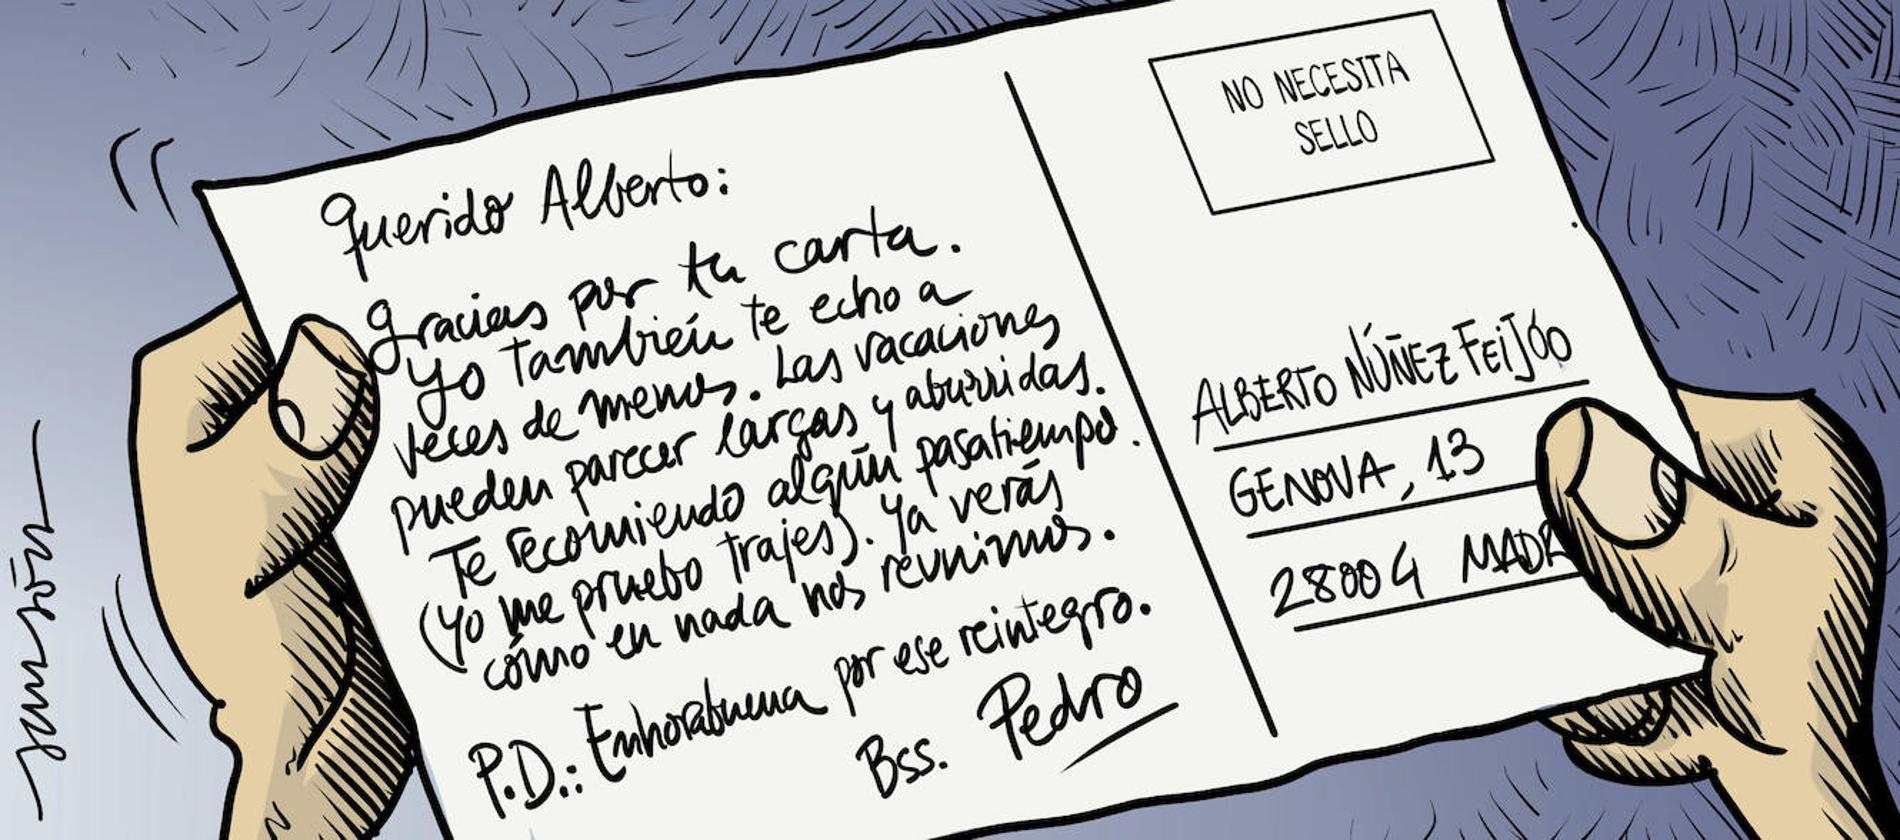 Querido Alberto:
Gracias por tu carta.
Yo también te echo a
veces de menos. Las vacaciones
pueden parecer largas y aburridas.
Te recomiendo algún pasatiempo.
(Yo me pruebo trajes). Ya verás
cómo en nada nos reunimos.
P.D.: Enhorabuena por ese reintegro.
Bss. Pedro
NO NECESITA
SELLO
ALBERTO NÚÑEZ FEIJÓO
GENOVA, 13
28004 MADR
sansón